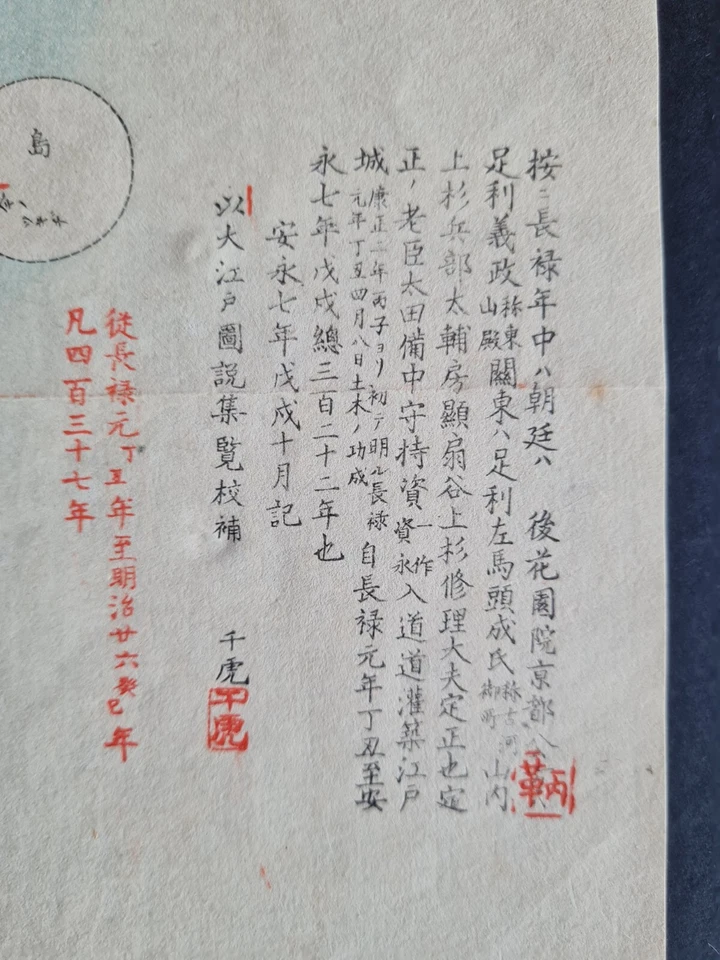 按ニ長禄年中ハ朝廷ハ 後花園院京都ハ
足利義政称東山殿關東ハ足利左馬頭成氏称古河御所山内
上杉兵部太輔房顯扇谷上杉修理大夫定正也定
正ノ老臣太田備中守持資一作資永入道道灌築江戸
城康正二年丙子ヨリ初テ明ル長禄元年丁丑四月八日土木ノ功成自長禄元年丁丑至安
永七年戊戌總三百二十二年也
安永七年戊戌十月記
以大江戸圖説集覧校補 千虎
千虎
従長禄元丁丑年至明治廿六癸巳年
凡四百三十七年
島